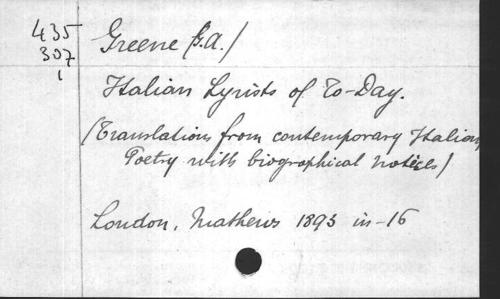 435
307
1
Greene (G.A.)
Italian Lyrists of To-Day.
(Translations from contemporary Italian
Poetry with biographical notices)
London, Mathews 1893 in-16